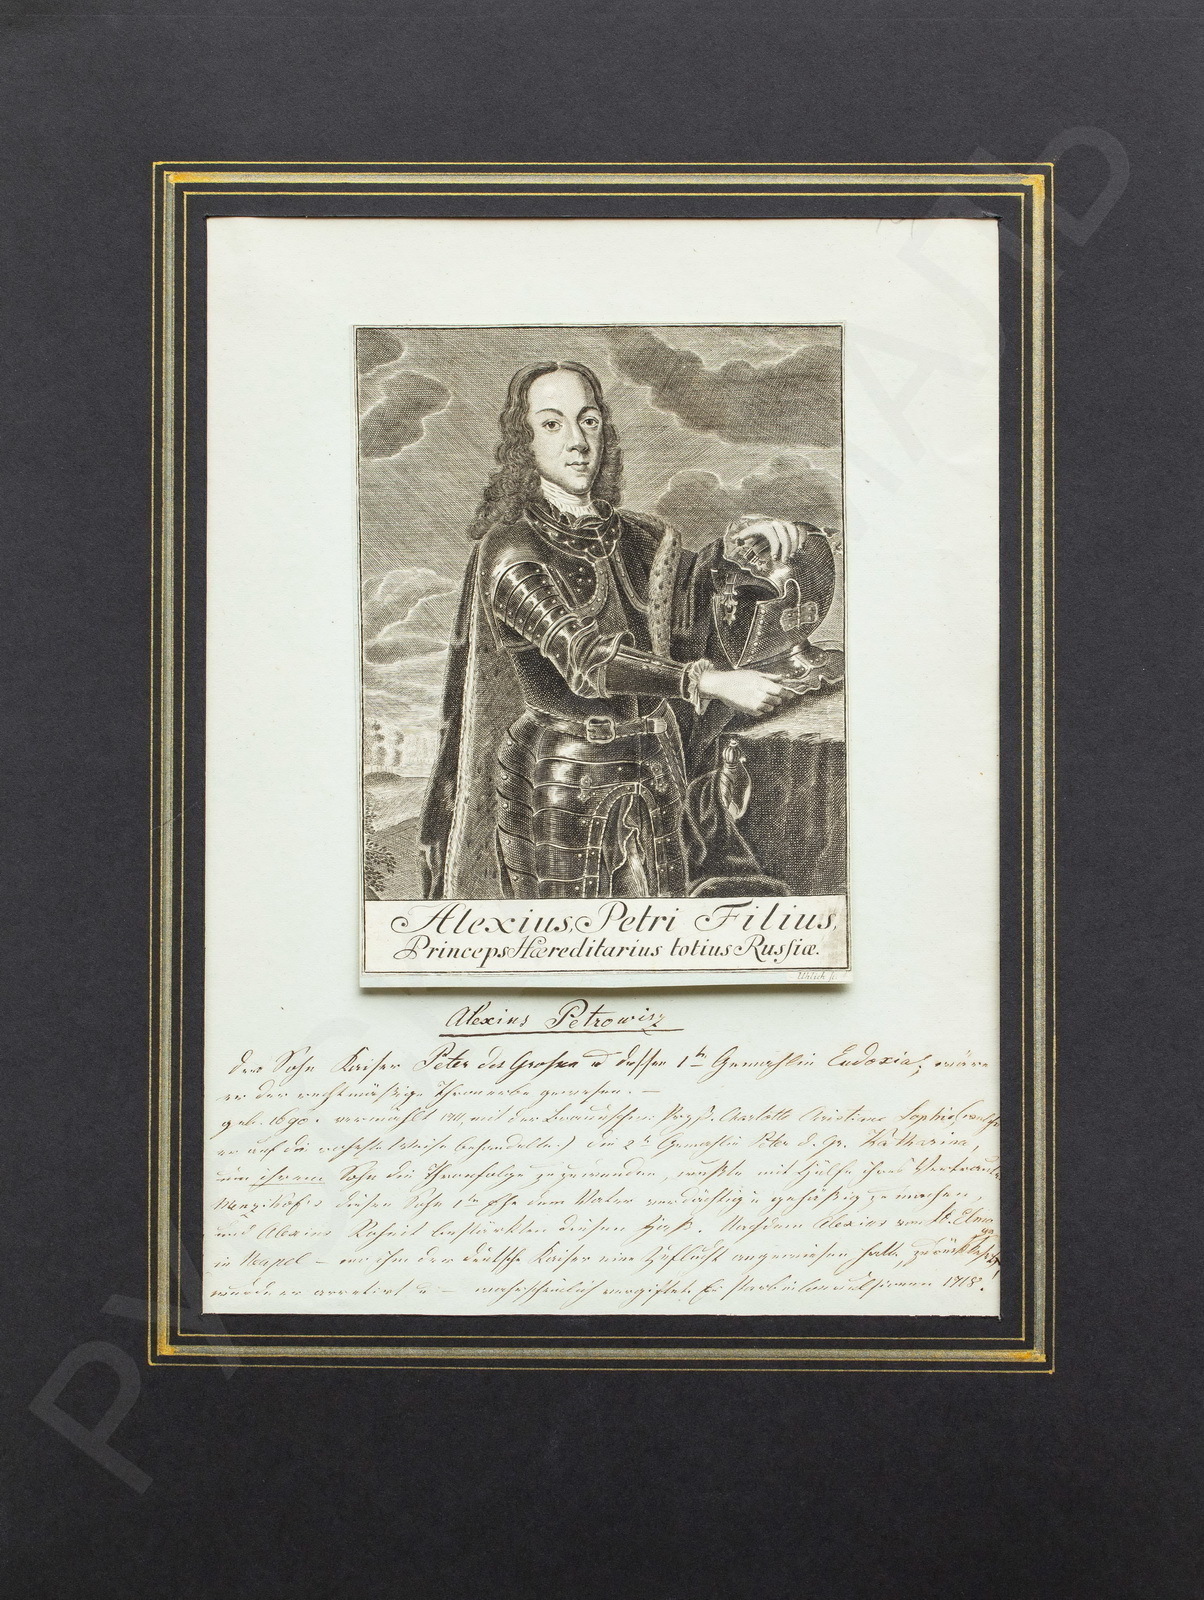 Alexius, Petri Filius,
Princeps Hæreditarius totius Russiæ.
Uhlich sc.
Alexius Petrowisz
der Sohn Kaiser Peter des Großen u dessen 1tn Gemahlin Eudoxia, wäre
er der rechtmäßige Thronerbe gewesen. —
geb. 1690. vermählt 1711 mit der Braunschw: Charlotte Christine Sophie
er auf die Weise behandelte.) die 2te Gemahlin Peter d. Gr. Katharina,
um ihrem Sohn die Thronfolge zuzuwenden, wußte mit Hülfe ihres Vertrauten
Menzikofs diesen Sohn 1ter Ehe dem Vater verdächtig u gehäßig zu machen,
und Alexius Roheit bestärkten diesen Haß. Nachdem Alexius von St. Elmo
in Neapel — wo ihm der deutsche Kaiser eine Zuflucht angewiesen hatte, zurück
wurde er arretirt u — wahrscheinlich vergiftet. 1718.